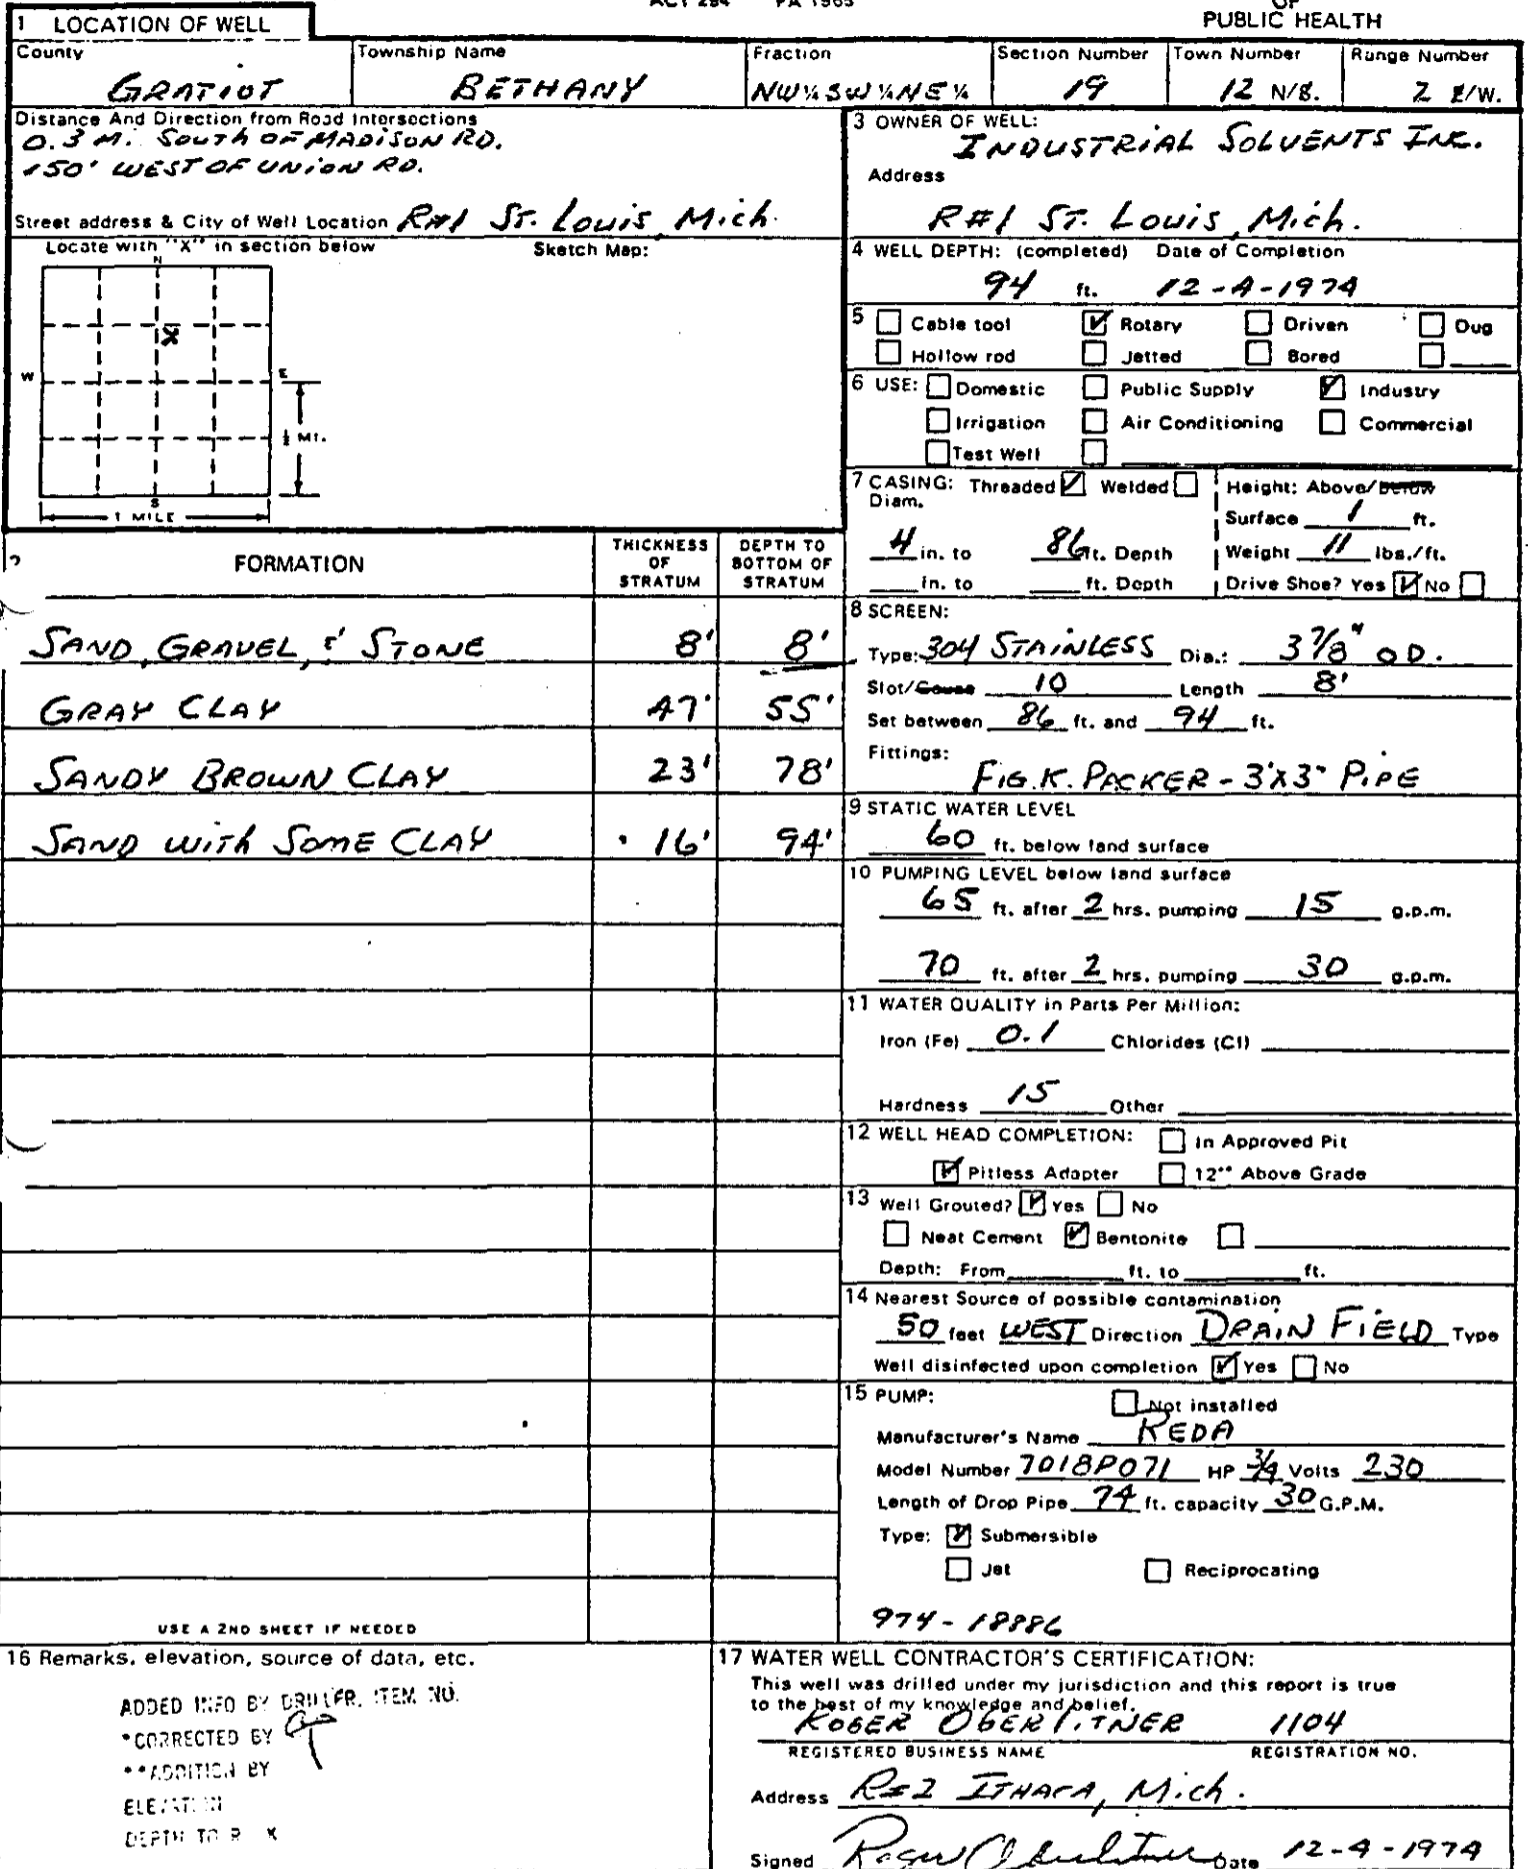 ACT 294 PA 1965
OF
PUBLIC HEALTH
1 LOCATION OF WELL
County
GRATIOT
Township Name
BETHANY
Fraction
NW¼SW¼NE¼
Section Number
19
Town Number
12 N/S.
Range Number
2 E/W.
Distance And Direction from Road Intersections
0.3 M. SOUTH OF MADISON RD.
150' WEST OF UNION RD.
Street address & City of Well Location R#1 ST. Louis, Mich.
Locate with "X" in section below
Sketch Map:
N
X
W
E
½ MI.
S
1 MILE
3 OWNER OF WELL:
INDUSTRIAL SOLVENTS INC.
Address
R#1 ST. Louis, Mich.
4 WELL DEPTH: (completed) Date of Completion
94 ft. 12-4-1974
5 Cable tool Rotary Driven Dug
Hollow rod Jetted Bored
6 USE: Domestic Public Supply Industry
Irrigation Air Conditioning Commercial
Test Well
7 CASING: Threaded Welded
Diam.
4 in. to 86 ft. Depth
in. to ft. Depth
Height: Above/Below
Surface 1 ft.
Weight 11 lbs./ft.
Drive Shoe? Yes No
2
FORMATION
THICKNESS OF STRATUM
DEPTH TO BOTTOM OF STRATUM
SAND, GRAVEL, & STONE 8' 8'
GRAY CLAY 47' 55'
SANDY BROWN CLAY 23' 78'
SAND WITH SOME CLAY 16' 94'
USE A 2ND SHEET IF NEEDED
8 SCREEN:
Type: 304 STAINLESS Dia.: 3 7/8" O D.
Slot/Gauze 10 Length 8'
Set between 86 ft. and 94 ft.
Fittings:
FIG. K. PACKER - 3'X3" PIPE
9 STATIC WATER LEVEL
60 ft. below land surface
10 PUMPING LEVEL below land surface
65 ft. after 2 hrs. pumping 15 g.p.m.
70 ft. after 2 hrs. pumping 30 g.p.m.
11 WATER QUALITY in Parts Per Million:
Iron (Fe) 0.1 Chlorides (Cl)
Hardness 15 Other
12 WELL HEAD COMPLETION: In Approved Pit
Pitless Adapter 12" Above Grade
13 Well Grouted? Yes No
Neat Cement Bentonite
Depth: From ft. to ft.
14 Nearest Source of possible contamination
50 feet WEST Direction DRAIN FIELD Type
Well disinfected upon completion Yes No
15 PUMP: Not installed
Manufacturer's Name REDA
Model Number 7018P071 HP 3/4 Volts 230
Length of Drop Pipe 74 ft. capacity 30 G.P.M.
Type: Submersible
Jet Reciprocating
974-18886
16 Remarks, elevation, source of data, etc.
ADDED INFO BY DRILLER, ITEM NO.
*CORRECTED BY
**ADDITION BY
ELEVATION
DEPTH TO
17 WATER WELL CONTRACTOR'S CERTIFICATION:
This well was drilled under my jurisdiction and this report is true
to the best of my knowledge and belief.
ROGER OBERLITNER 1104
REGISTERED BUSINESS NAME REGISTRATION NO.
Address R#2 ITHACA, Mich.
Signed Roger Oberlitner Date 12-4-1974